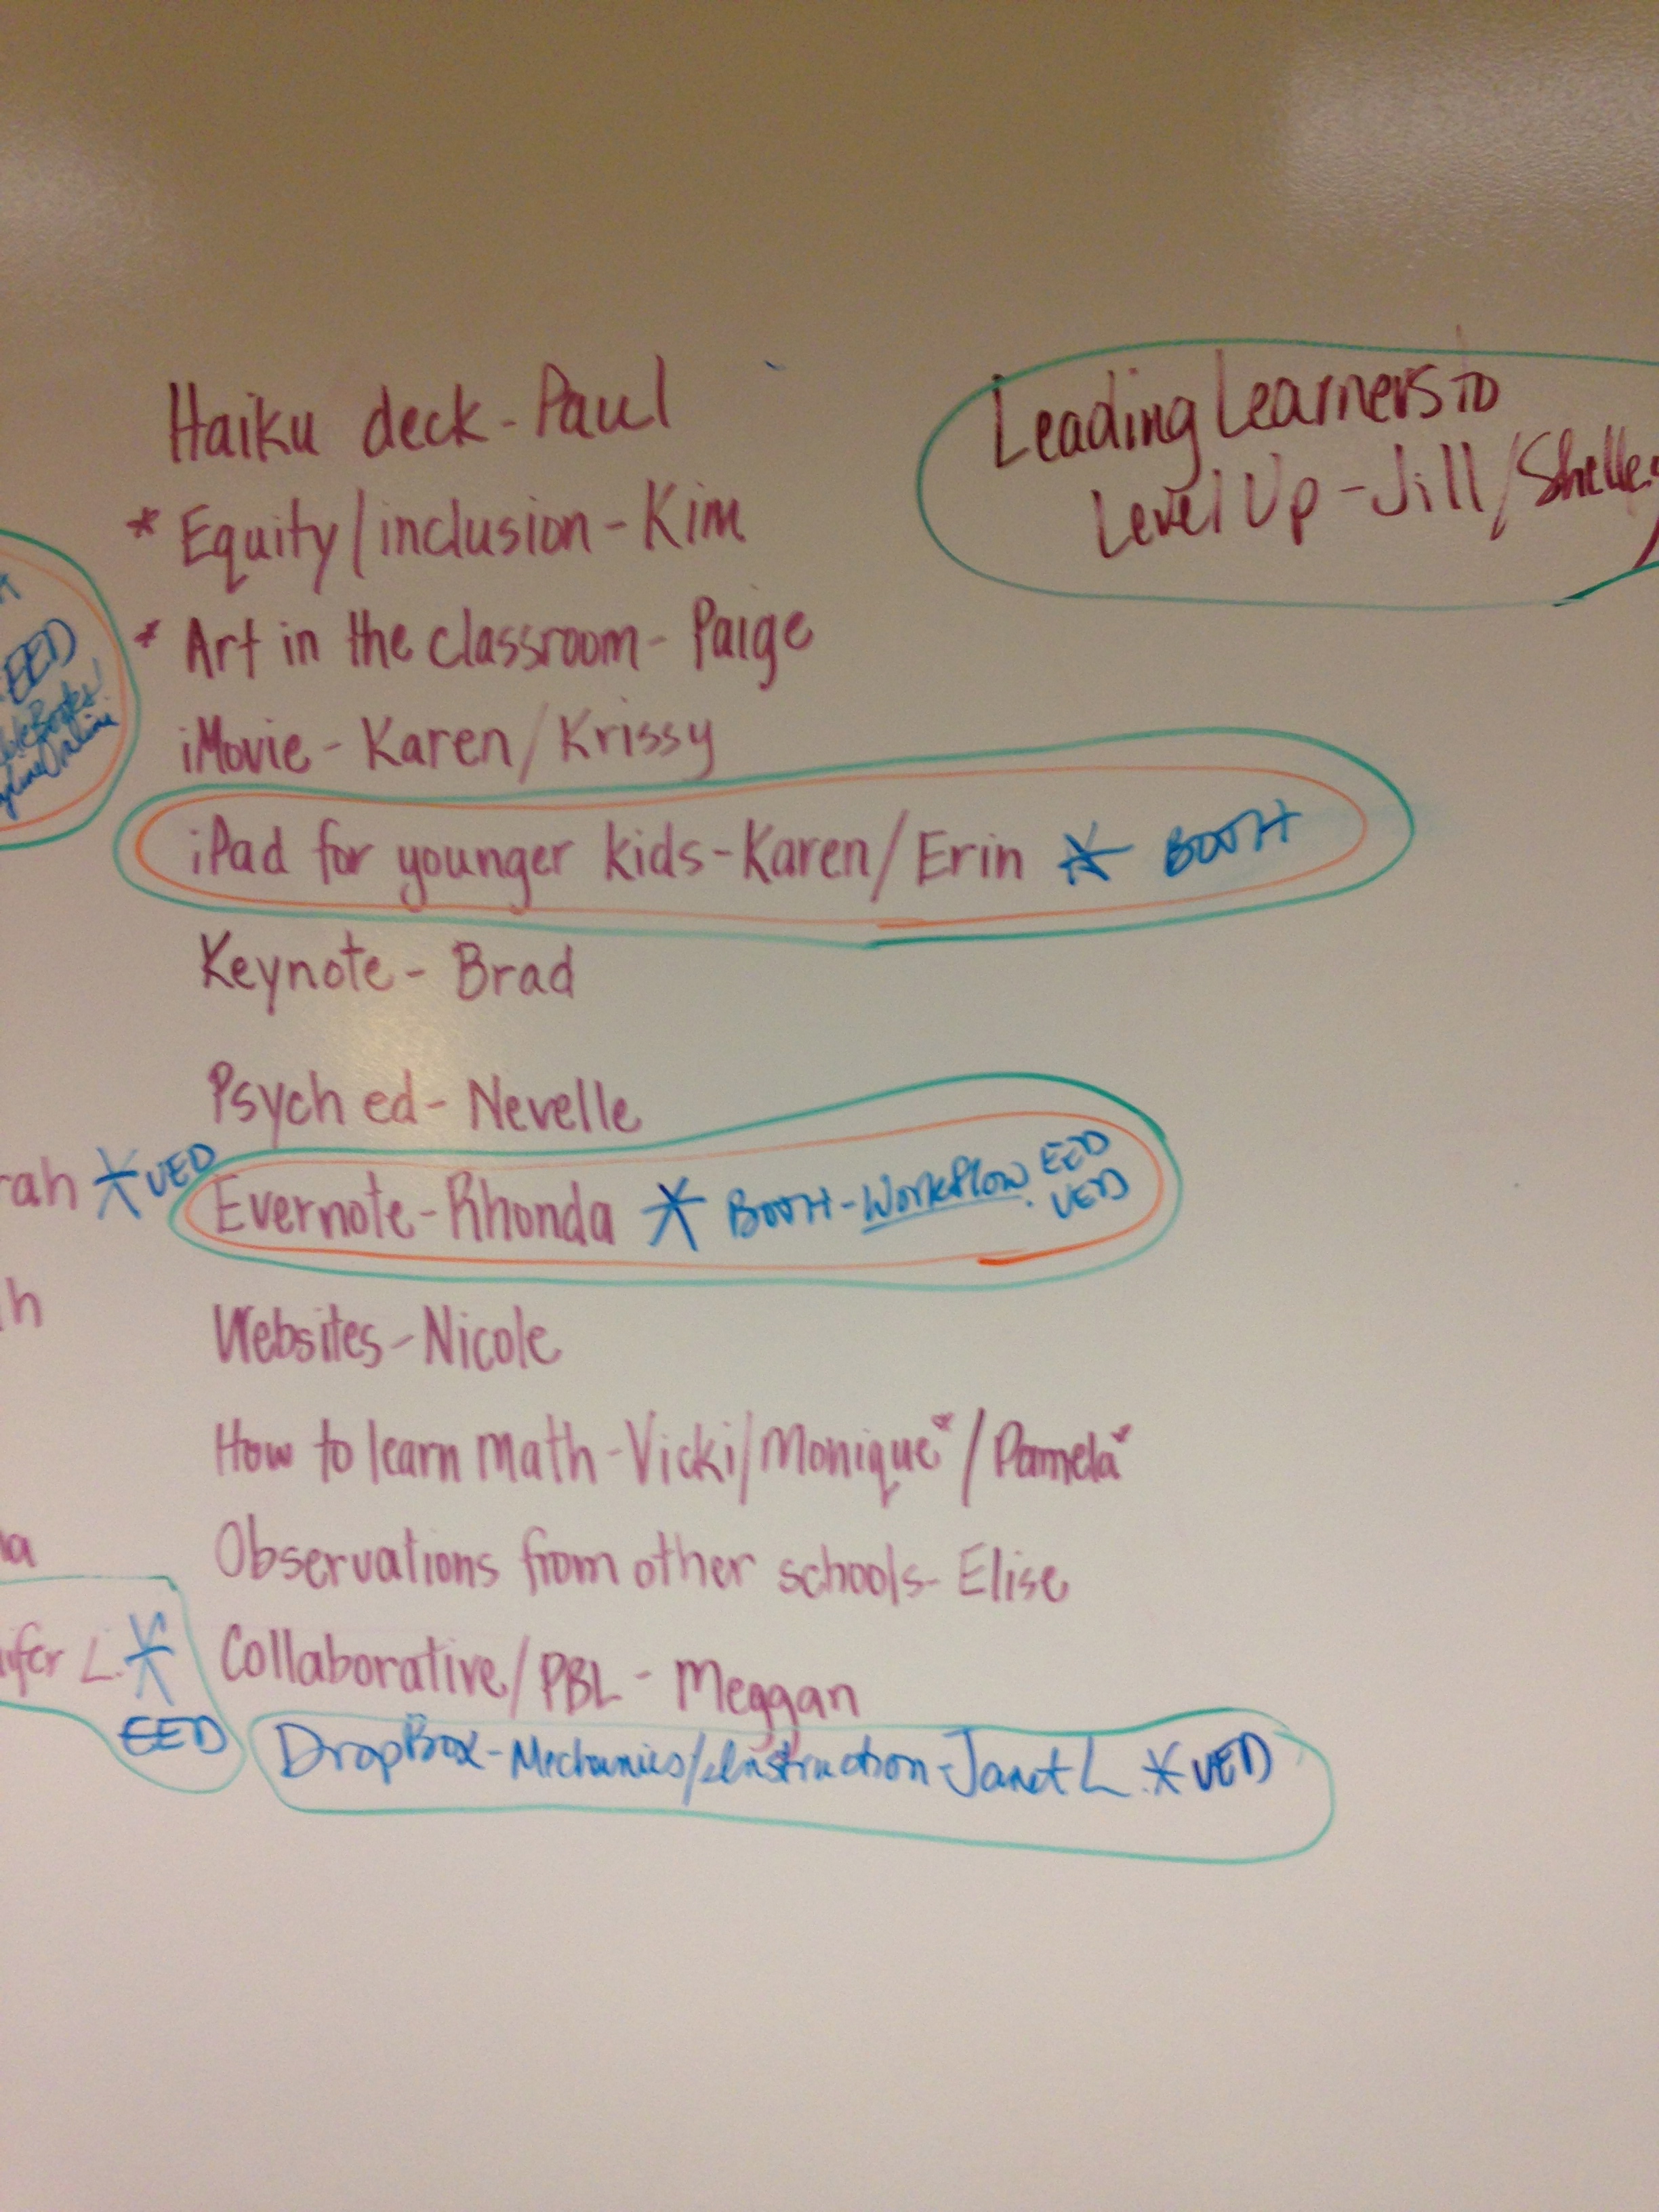 Haiku deck - Paul
* Equity/inclusion - Kim
* Art in the classroom - Paige
iMovie - Karen/Krissy
iPad for younger kids - Karen/Erin * BOOTH
Keynote - Brad
Psych ed - Nevelle
Evernote - Rhonda * BOOTH - Workflow. EED
VED
Websites - Nicole
How to learn math - Vicki/Monique*/Pamela*
Observations from other schools - Elise
Collaborative/PBL - Meggan
DropBox - Mechanics/Instruction - Janet L. * VED
Leading Learners to
Level Up - Jill/Shelley
EED
rah * VED
L. *
EED